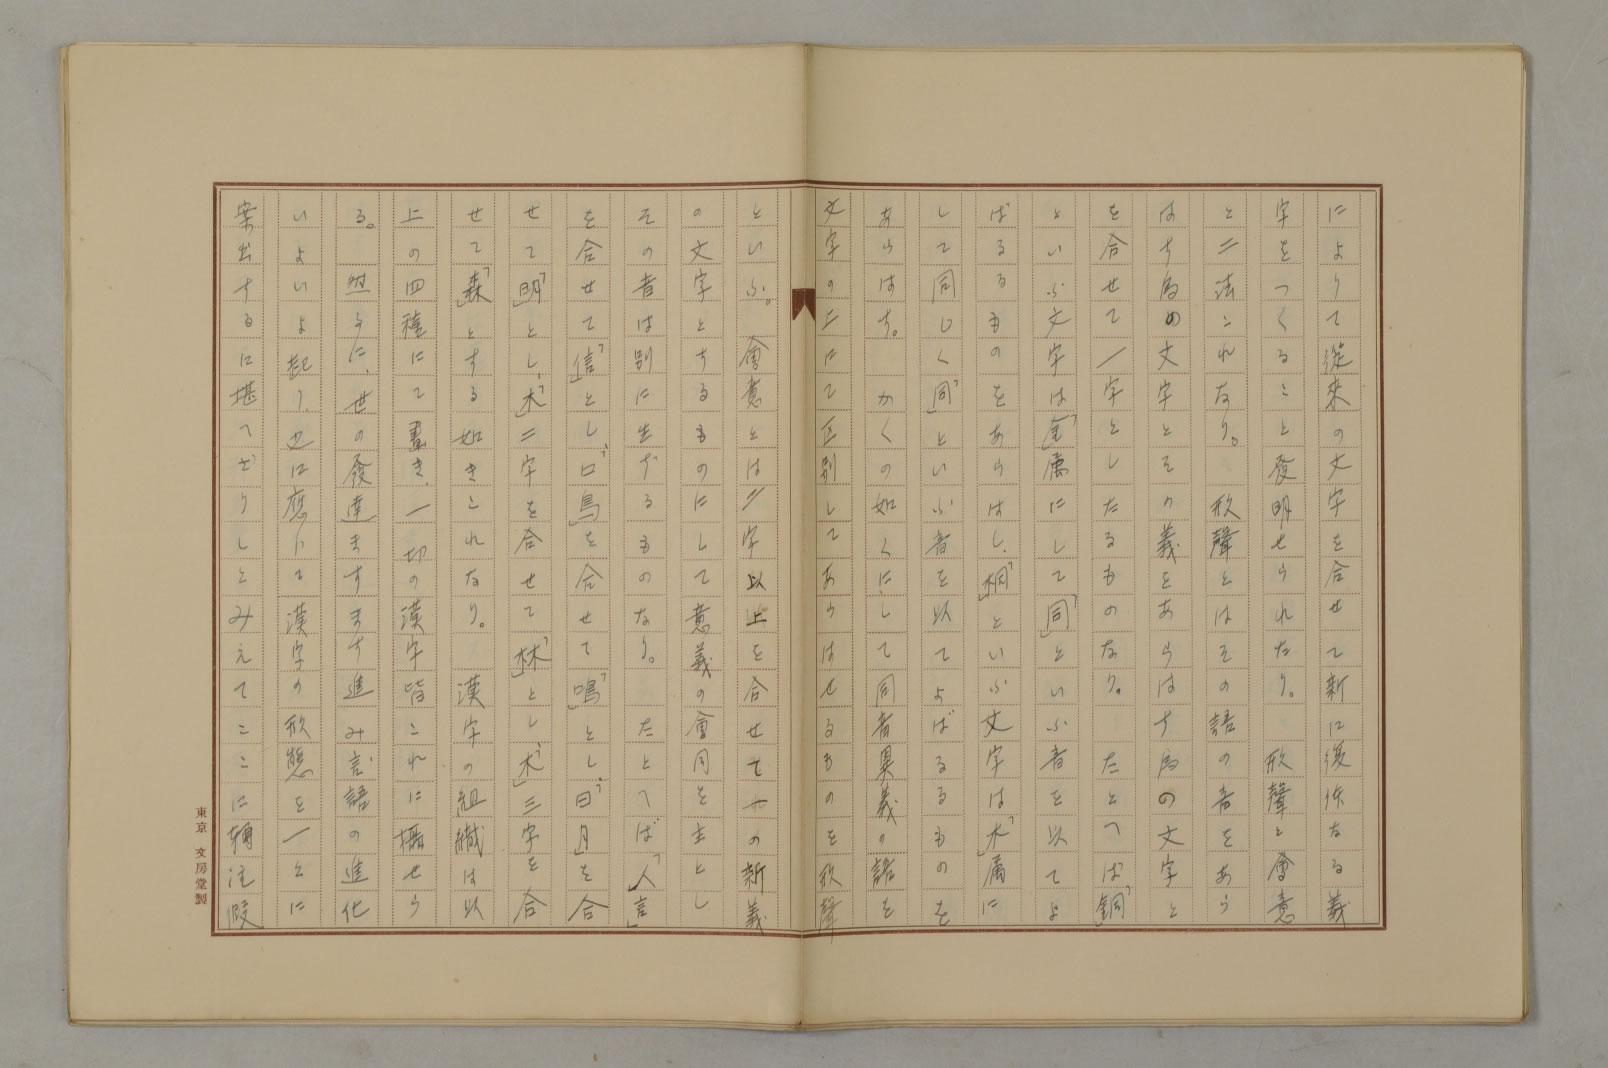 によりて從來の文字を合せて新に復体なる義
字をつくること發明せられたり。　形聲と會意
と二法これなり。　形聲とはその語の音をあら
はす為の文字とその義をあらはす為の文字と
を合せて一字としたるものなり。　たとへば「銅」
といふ文字は「金」属にして「同」といふ音を以てよ
ばるるものをあらはし、「桐」といふ文字は「木」属に
して同じく「同」といふ音を以てよばるるものを
あらはす。　かくの如くにして同音異義の語を
文字の上にて区別してあらはせるものを形聲
といふ。　會意とは二字以上を合せて一の新義
の文字とするものにして意義の會同を主とし
その音は別に生ずるものなり。　たとへば「人」「言」
を合せて「信」とし「口」「鳥」を合せて「鳴」とし「日」「月」を合
せて「明」とし、「木」二字を合せて「林」とし、「木」三字を合
せて「森」とする如きこれなり。　漢字の組織は以
上の四種にて盡き、一切の漢字皆これに攝せら
る。　然るに、世の發達ますます進み言語の進化
いよいよ起り、之に應じて漢字の形態を一々に
案出するに堪へざりしとみえてここに轉注假
東京 文房堂製